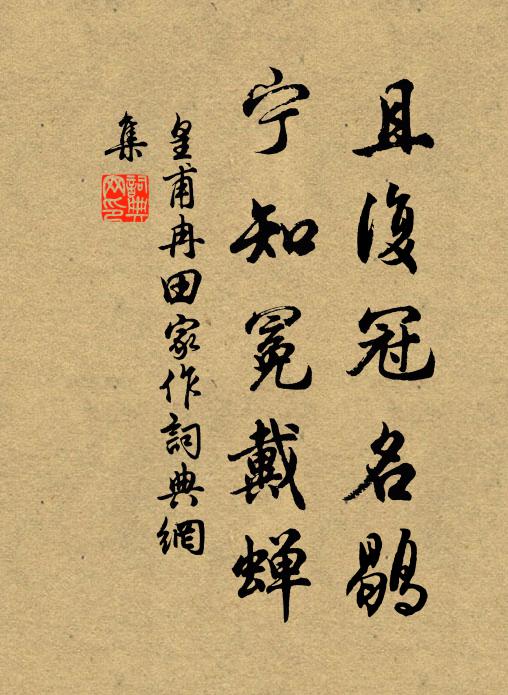 且復冠名鶡
宁知冕戴蝉
皇甫冉田家作詞典網
集
詞典網印